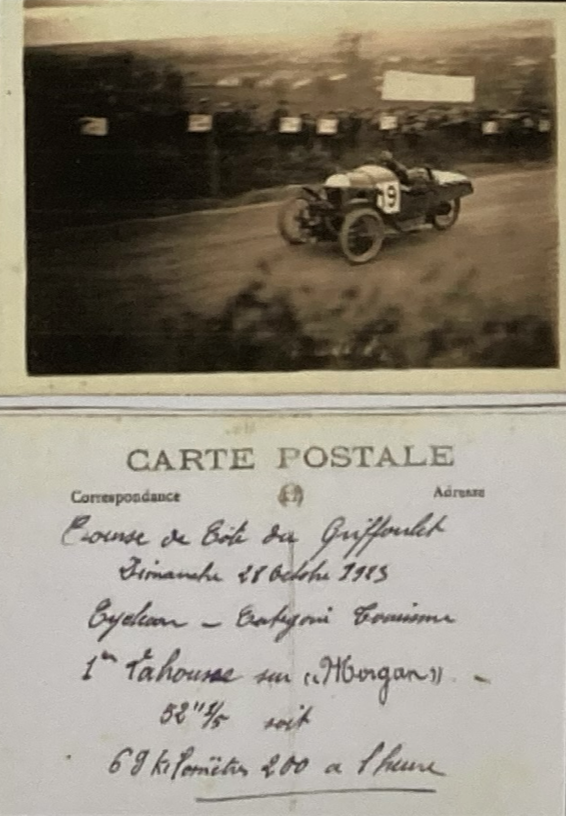 9
CARTE POSTALE
Correspondance
Adresse
Course de Côte du Griffoulet
Dimanche 28 Octobre 1923
Cyclecar – Catégorie Tourisme
1er Lahousse sur «Morgan» –
52" 1/5 soit
69 kilomètres 200 a l'heure